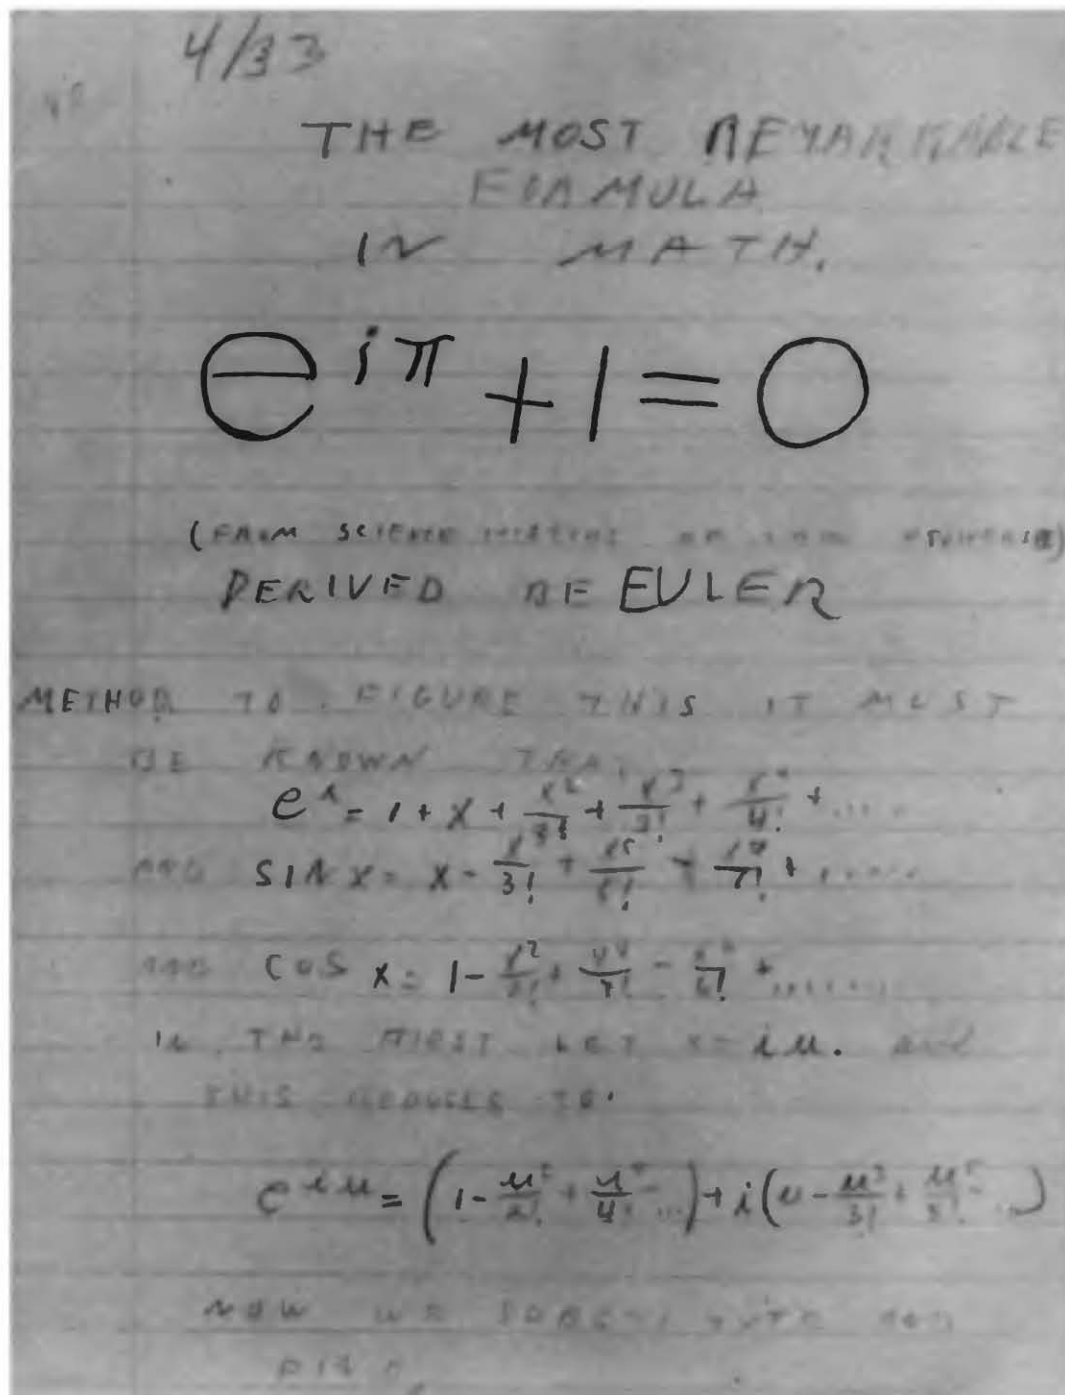 4/33
THE MOST REMARKABLE
FORMULA
IN MATH.
e^{iπ} + 1 = 0
(FROM SCIENCE HISTORY OF THE UNIVERSE)
DERIVED BE EULER
METHOD TO FIGURE THIS IT MUST
BE KNOWN THAT
e^x = 1 + x + x^2/2! + x^3/3! + x^4/4! + ....
AND SIN x = x - x^3/3! + x^5/5! - x^7/7! + .....
AND COS x = 1 - x^2/2! + x^4/4! - x^6/6! + ......
IN THE FIRST LET x = iu. and
THIS REDUCES TO:
e^{iu} = (1 - u^2/2! + u^4/4! - ...) + i(u - u^3/3! + u^5/5! - ...)
NOW WE SUBSTITUTE AND